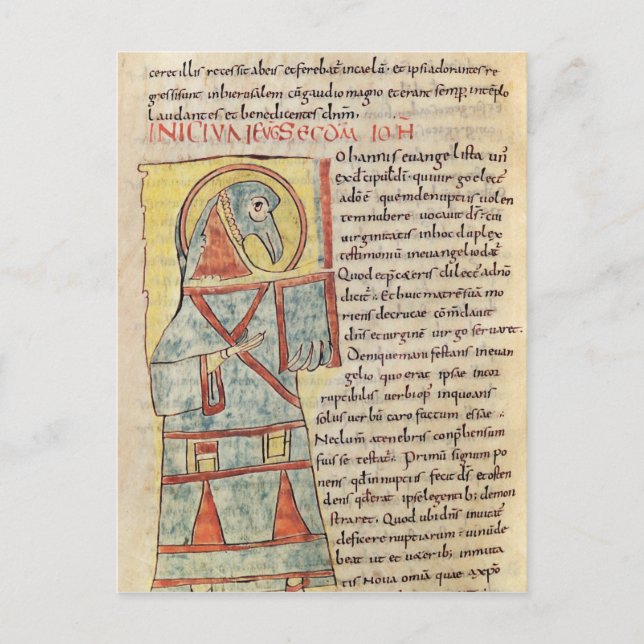 ceret illis recessit abeis et ferebat incaelū· et ipsi adorantes re
gressi sunt inhierusalem cūgaudio magno et erant semp intēplo
laudantes et benedicentes dnm·
INICIUM EUG SECDM IOH
Iohannis euangelista un
ex discipulis di· qui uirgo elect
adō ē quem denuptiis uolen
tem nubere uocauit ds· cui
uirginitatis inhoc duplex
testimoniū ineuangelio dat
Quod et p caeteris dilect adno
dicit· Et huic matrem suā mo
riens decruce commdauit
dns et uirginē uirgo seruaret·
Denique manifestans ineuan
gelio quo erat ipse incor
ruptibilis uerbi op inquoans
solus uerbū caro factum esse
Nec lum atenebris conphensum
fuisse testat· Primū signum po
nens qd innuptiis fecit ds et osten
dens qd erat ipse legentib; demon
straret· Quod ubi dns inuitat
deficere nuptiarum uinū de
beat ut et ueterib; inmuta
tis Noua omia quae axpō